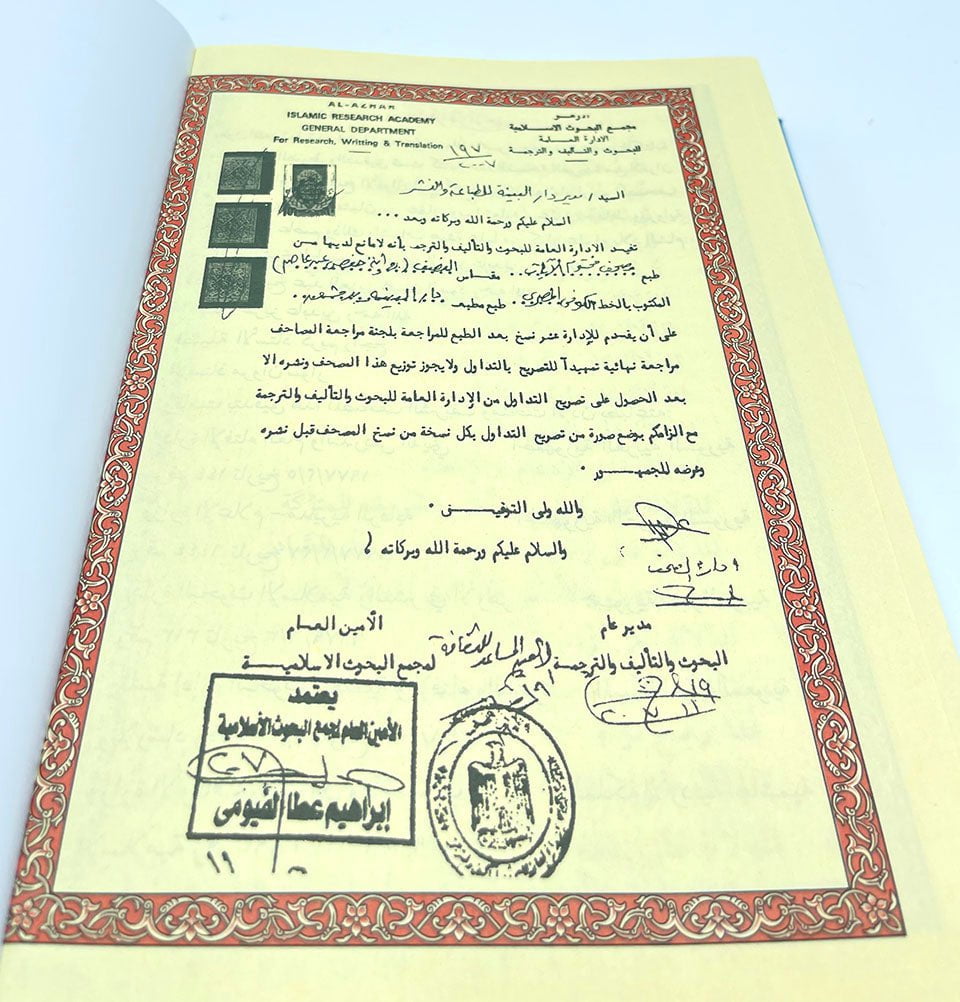 AL-AZHAR
ISLAMIC RESEARCH ACADEMY
GENERAL DEPARTMENT
For Research, Writting & Translation
الازهر
مجمع البحوث الاسلامية
الادارة العامة
للبحوث والتأليف والترجمة
١٩٧
السيد / مدير دار البينة للطباعة والنشر
السلام عليكم ورحمة الله وبركاته وبعد ...
تفيد الادارة العامة للبحوث والتأليف والترجمة بأنه لا مانع لديها من
طبع مصحف مقاس (رواية حفص عن عاصم)
المكتوب بالخط الكوفى . طبع مطبعة
على أن يقدم للإدارة عشر نسخ بعد الطبع للمراجعة بلجنة مراجعة المصاحف
مراجعة نهائية تمهيداً للتصريح بالتداول ولا يجوز توزيع هذا المصحف ونشره الا
بعد الحصول على تصريح التداول من الإدارة العامة للبحوث والتأليف والترجمة
مع الزامكم بوضع صورة من تصريح التداول بكل نسخة من نسخ المصحف قبل نشره
وعرضه للجمهــــور .
والله ولى التوفيــــق .
والسلام عليكم ورحمة الله وبركاته
مدير عام
البحوث والتأليف والترجمة
الأمين العـام
لمجمع البحوث الاسلاميـــة
يعتمد
الأمين العام لمجمع البحوث الأسلامية
٢٠٠٧
إبراهيم عطا الفيومى
١٩